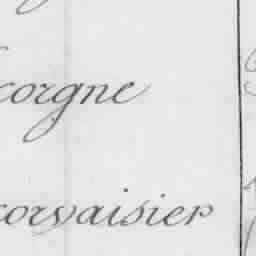 corgne
corvaisier